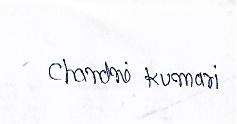 Chandni Kumari